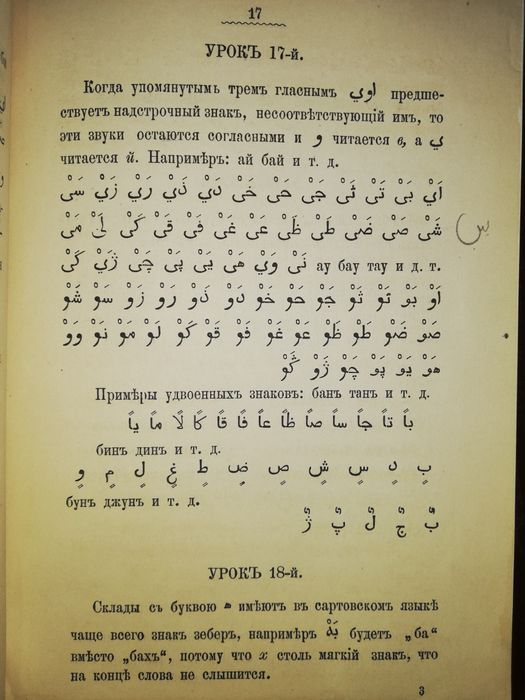 17
УРОКЪ 17-й.
Когда упомянутымъ тремъ гласнымъ اوي предше-
ствуетъ надстрочный знакъ, несоотвѣтствующій имъ, то
эти звуки остаются согласными и و читается в, а ي
читается й. Напримѣръ: ай бай и т. д.
اَيْ بَيْ تَيْ ثَيْ جَيْ حَيْ خَيْ دَيْ ذَيْ رَيْ زَيْ سَيْ
شَيْ صَيْ ضَيْ طَيْ ظَيْ عَيْ غَيْ فَيْ قَيْ كَيْ لَيْ مَيْ
س
نَيْ وَيْ هَيْ يَيْ پَيْ چَيْ ژَيْ گَيْ ау бау тау и д. т.
اَوْ بَوْ تَوْ ثَوْ جَوْ حَوْ خَوْ دَوْ ذَوْ رَوْ زَوْ سَوْ شَوْ
صَوْ ضَوْ طَوْ ظَوْ عَوْ غَوْ فَوْ قَوْ كَوْ لَوْ مَوْ نَوْ وَوْ
هَوْ يَوْ پَوْ چَوْ ژَوْ گَوْ
Примѣры удвоенныхъ знаковъ: банъ танъ и т. д.
باً تاً جاً ساً صاً ظاً عاً فاً قاً كاً لاً ماً ياً
бинъ динъ и т. д.
بٍ دٍ سٍ شٍ صٍ ضٍ طٍ غٍ لٍ مٍ وٍ
бунъ джунъ и т. д.
بٌ جٌ لٌ پٌ ژٌ
УРОКЪ 18-й.
Склады съ буквою ه имѣютъ въ сартовскомъ языкѣ
чаще всего знакъ зеберъ, напримѣръ بَهْ будетъ „ба“
вмѣсто „бахъ“, потому что х столь мягкій знакъ, что
на концѣ слова не слышится.
3